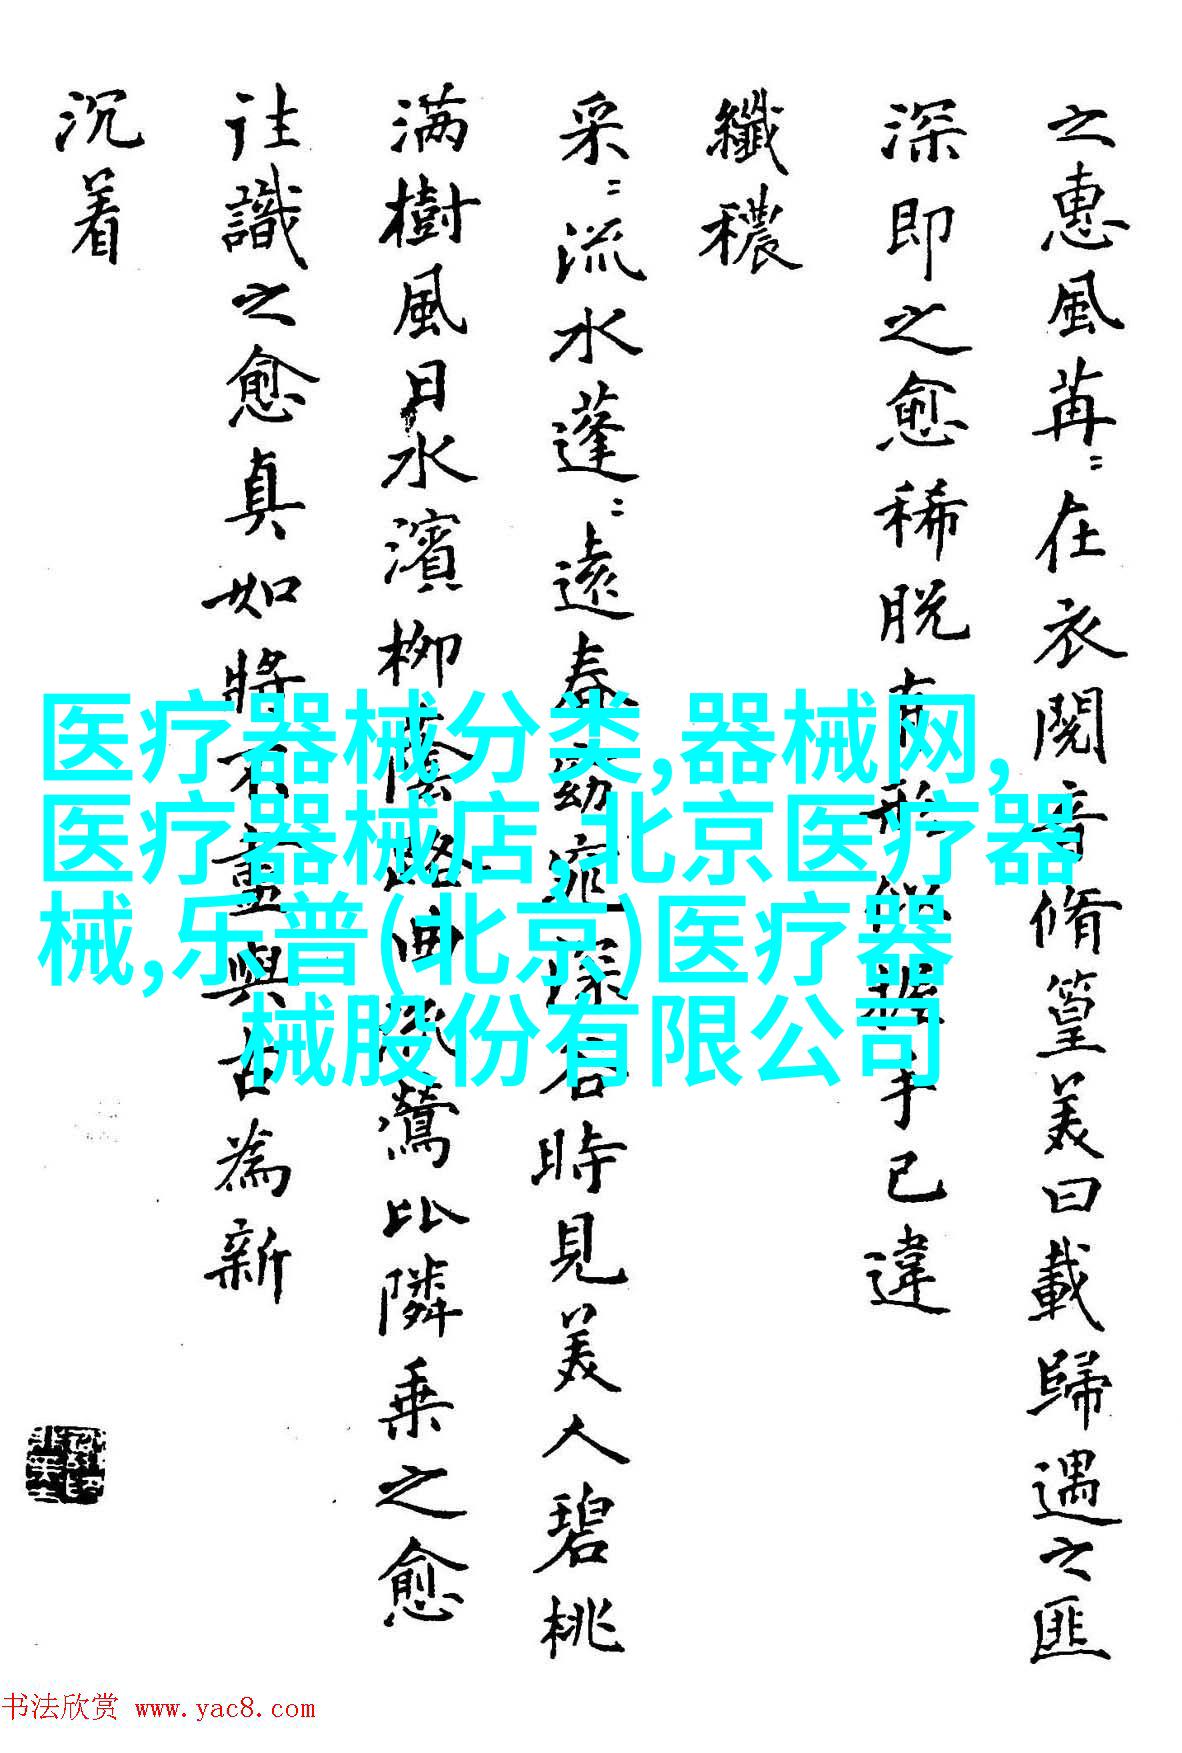 之惠風苒：在衣閱音脩篁美曰載歸遇之匪
深即之愈稀脱有形似握手已違
纖穠
采：流水蓬：遠春窈窕深谷時見美人碧桃
满樹風日水濱柳蔭路曲流鶯比隣乗之愈
往識之愈真如將不盡與古為新
沉着
医疗器械分类,器械网,
医疗器械店, 北京医疗器
械,乐普(北京)医疗器
械股份有限公司
书法欣赏 www.yac8.com